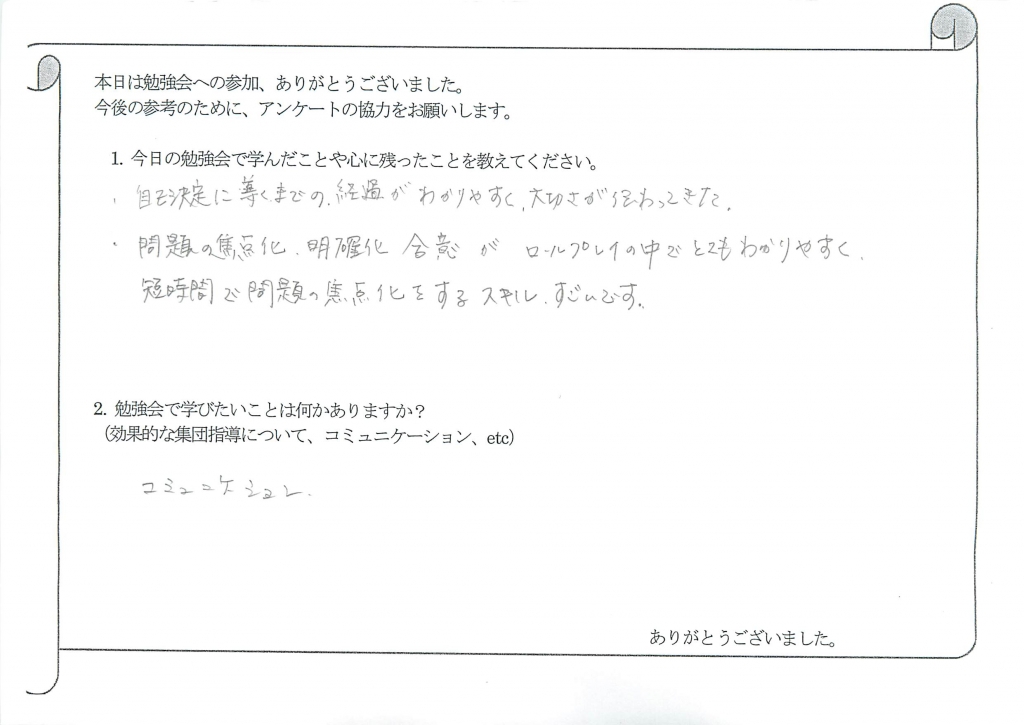 本日は勉強会への参加、ありがとうございました。
今後の参考のために、アンケートの協力をお願いします。
1. 今日の勉強会で学んだことや心に残ったことを教えてください。
・自己決定に導くまでの、経過がわかりやすく、大切さが伝わってきた。
・問題の焦点化、明確化 合意が ロールプレイの中でとてもわかりやすく、
短時間で問題の焦点化をするスキル、すごいです。
2. 勉強会で学びたいことは何かありますか？
（効果的な集団指導について、コミュニケーション、etc）
コミュニケーション.
ありがとうございました。